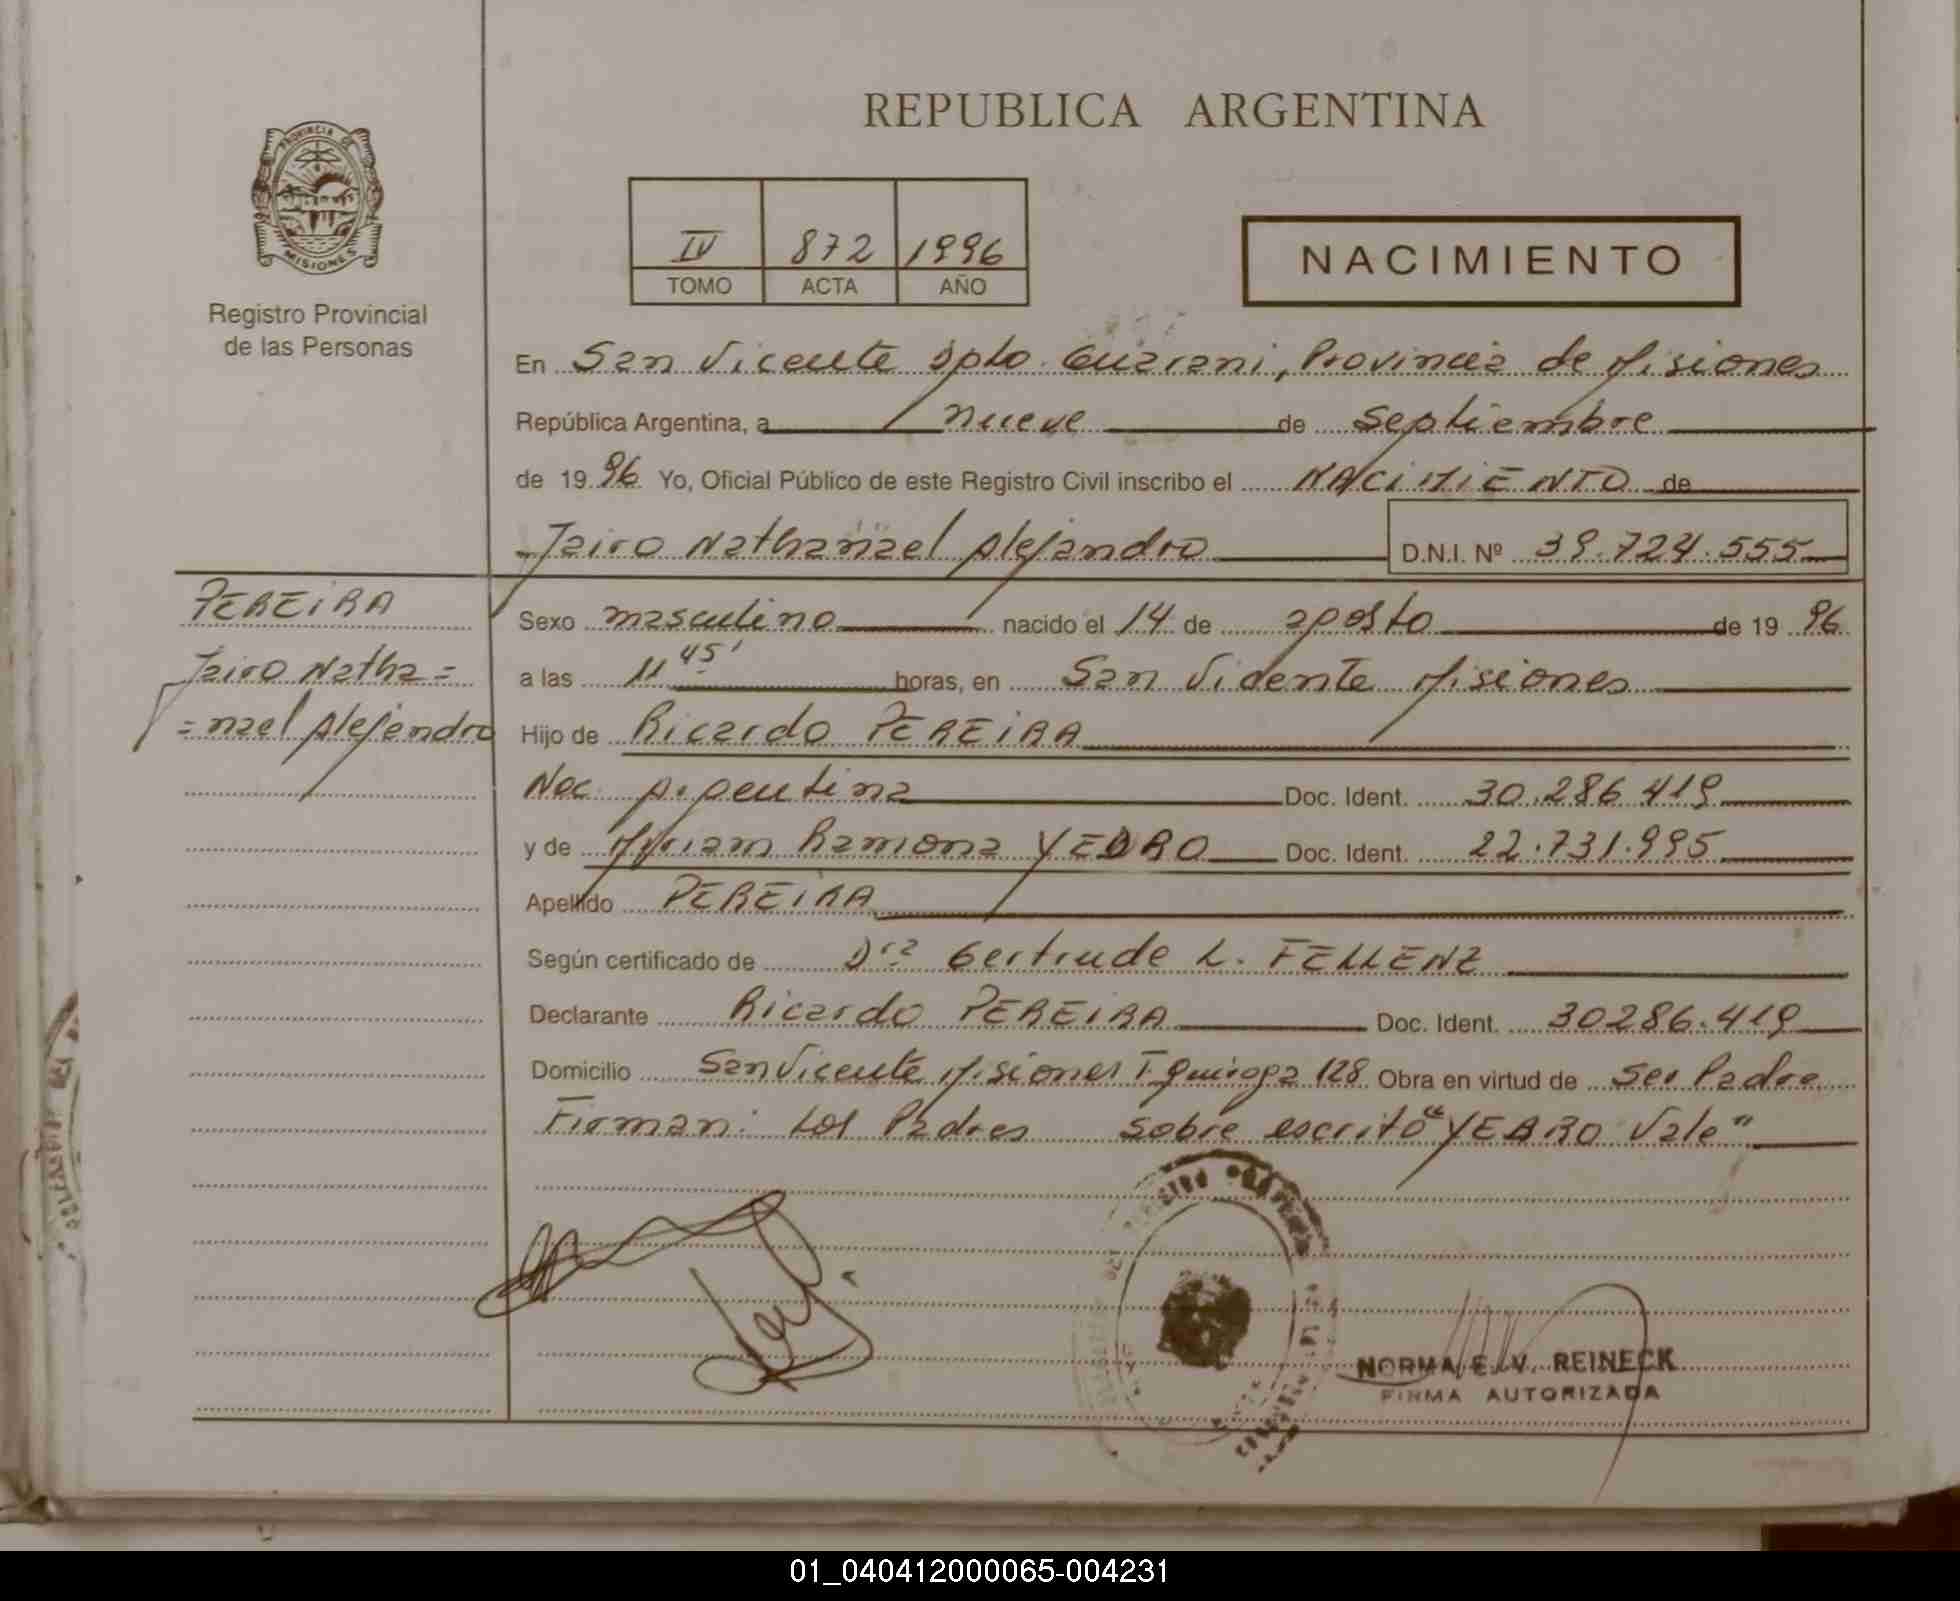 REPUBLICA ARGENTINA
PROVINCIA DE
MISIONES
Registro Provincial
de las Personas
IV 872 1996
TOMO ACTA AÑO
NACIMIENTO
En San Vicente Dpto. Guarani, Provincia de Misiones
República Argentina, a nueve de Septiembre
de 1996 Yo, Oficial Público de este Registro Civil inscribo el NACIMIENTO de
Jairo Nathanael Alejandro D.N.I. Nº 39.724.555
PEREIRA
Jairo Natha=
=nael Alejandro
Sexo masculino nacido el 14 de agosto de 1996
a las 11 45' horas, en San Vicente Misiones
Hijo de Ricardo PEREIRA
Nac. Argentina Doc. Ident. 30.286.419
y de Myriam Ramona YEDRO Doc. Ident. 22.731.995
Apellido PEREIRA
Según certificado de Dra Gertrude L. FELLENZ
Declarante Ricardo PEREIRA Doc. Ident. 30286.419
Domicilio San Vicente Misiones F Quiroga 128 Obra en virtud de Ser Padre
Firman: Los Padres Sobre escrito "YEDRO Vale"
NORMA E. V. REINECK
FIRMA AUTORIZADA
01_040412000065-004231